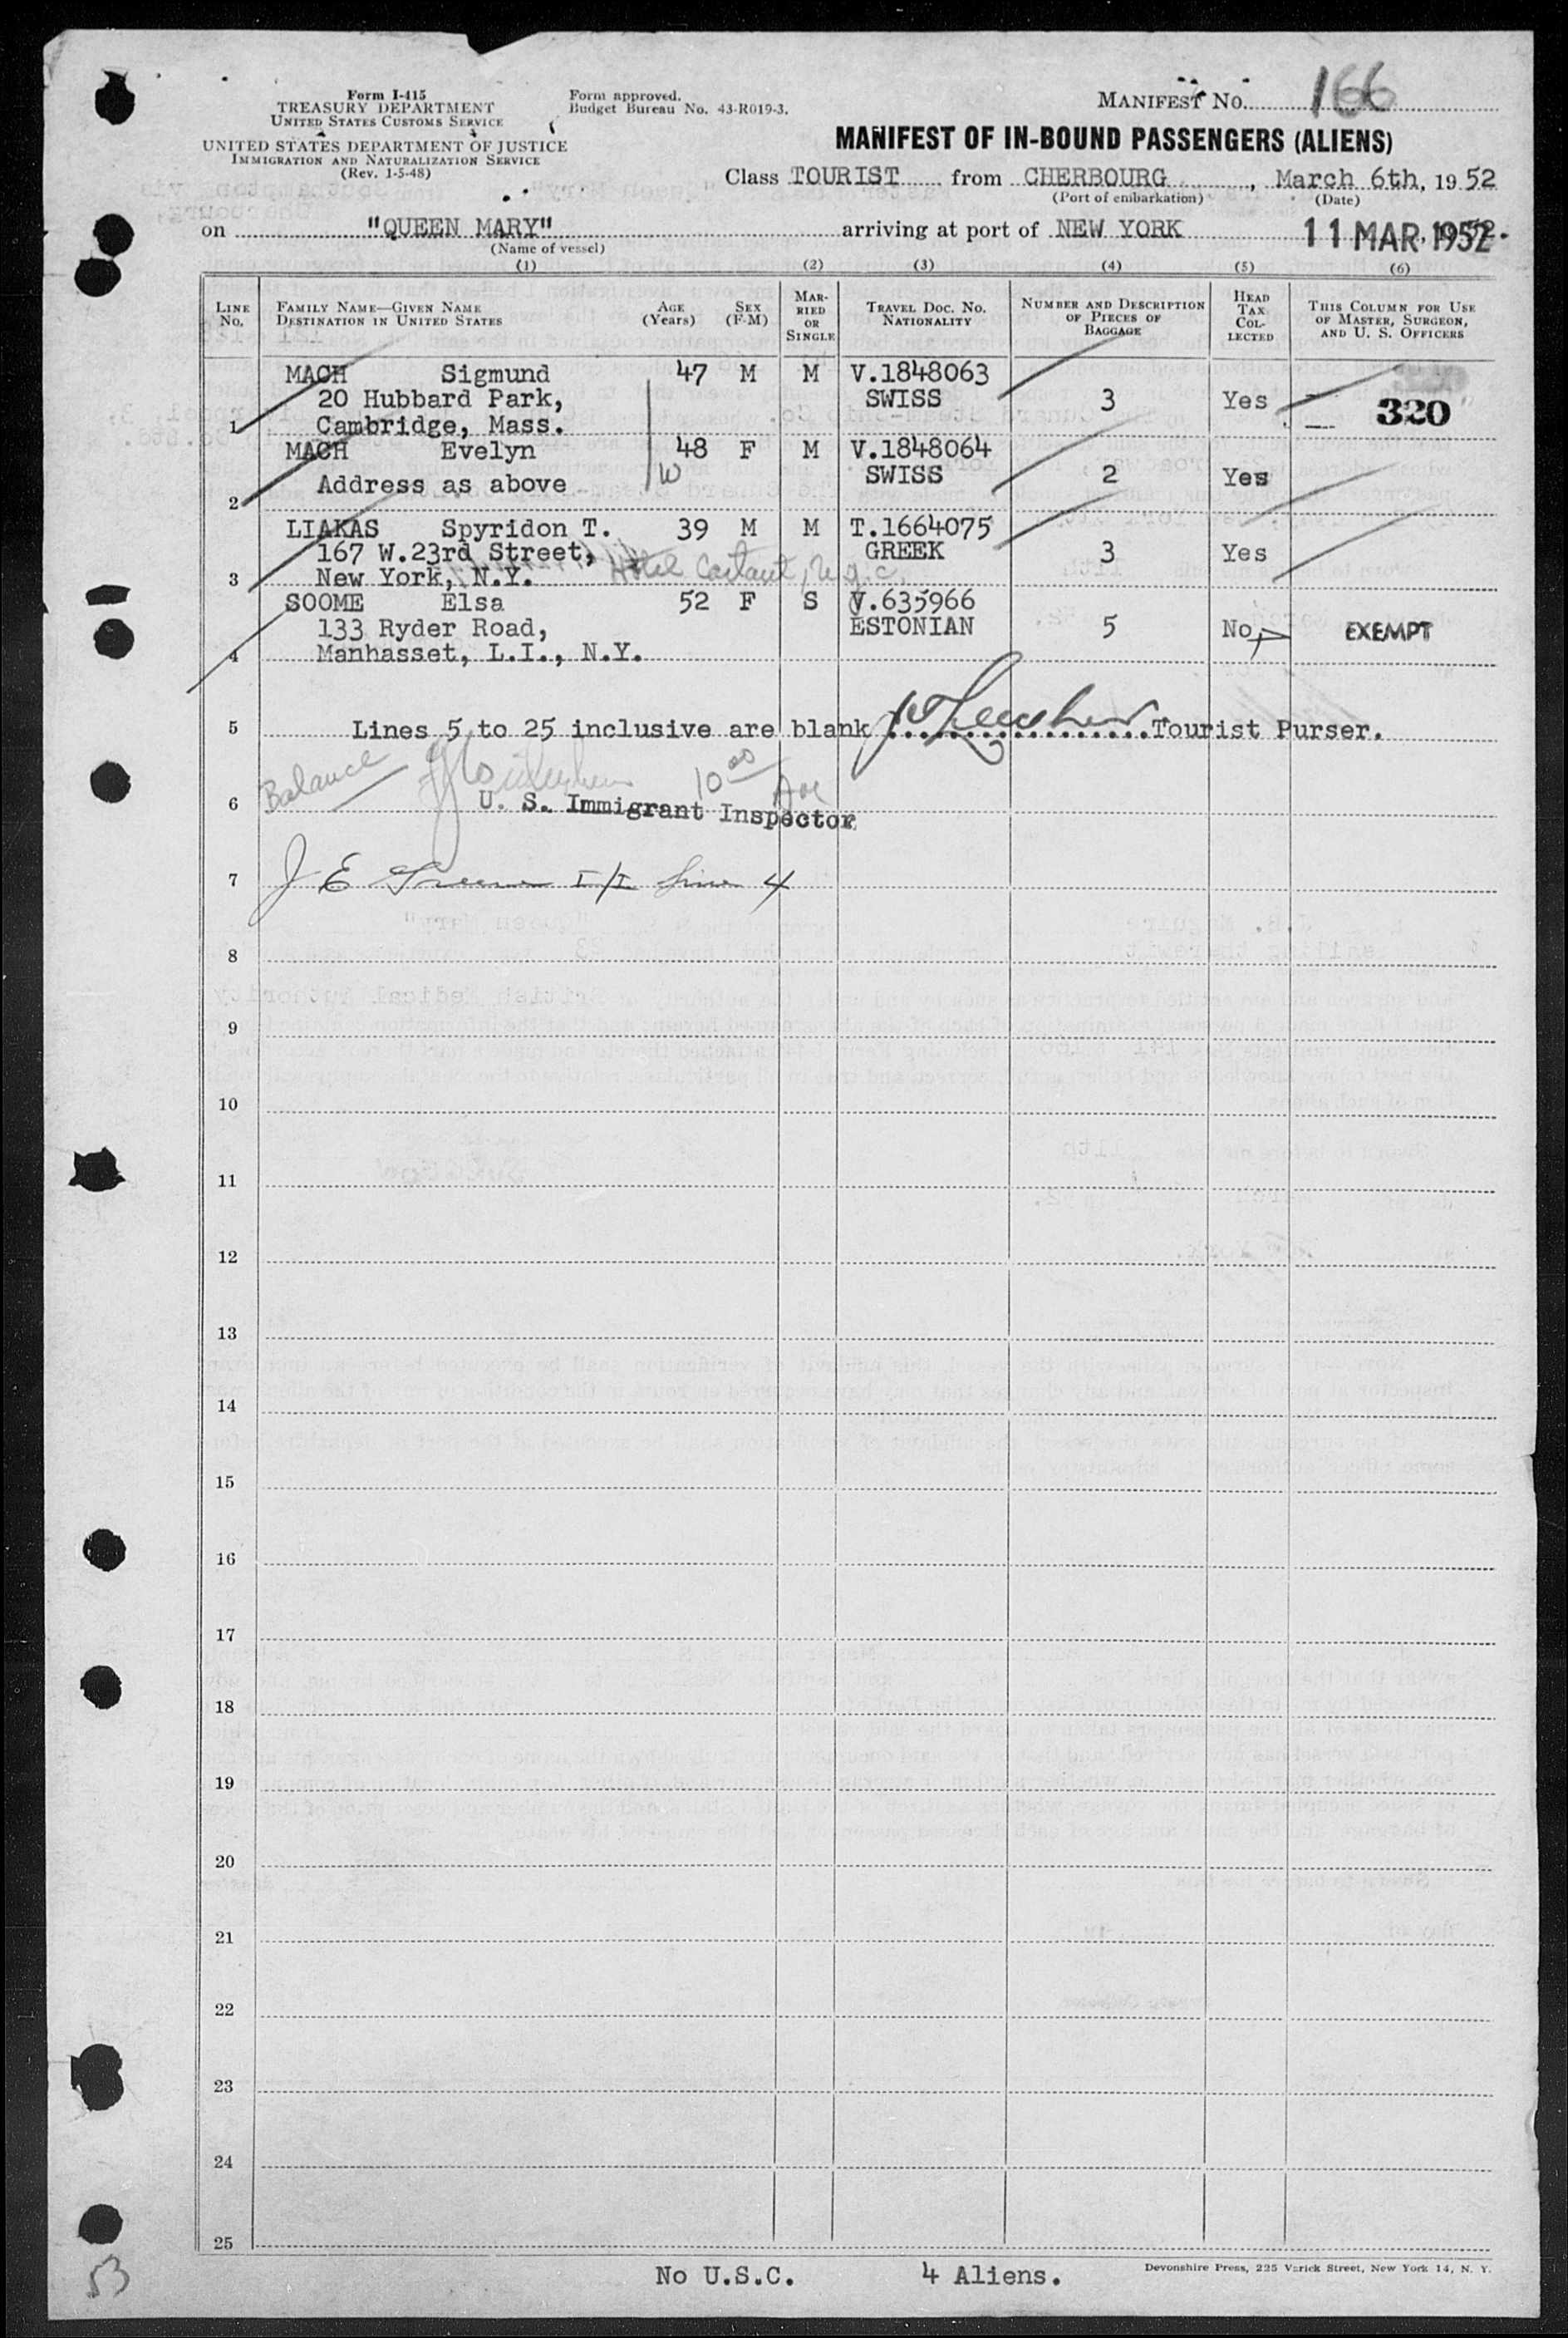 Form I-415
TREASURY DEPARTMENT
UNITED STATES CUSTOMS SERVICE
UNITED STATES DEPARTMENT OF JUSTICE
IMMIGRATION AND NATURALIZATION SERVICE
(Rev. 1-5-48)
Form approved.
Budget Bureau No. 43-R019-3.
MANIFEST No. 166
MANIFEST OF IN-BOUND PASSENGERS (ALIENS)
Class TOURIST from CHERBOURG, March 6th, 19 52
(Port of embarkation) (Date)
on "QUEEN MARY" arriving at port of NEW YORK 11 MAR 1952
(Name of vessel)
(1) (2) (3) (4) (5) (6)
LINE No. FAMILY NAME—GIVEN NAME DESTINATION IN UNITED STATES AGE (Years) SEX (F-M) MARRIED OR SINGLE TRAVEL DOC. NO. NATIONALITY NUMBER AND DESCRIPTION OF PIECES OF BAGGAGE HEAD TAX COLLECTED THIS COLUMN FOR USE OF MASTER, SURGEON, AND U. S. OFFICERS
MACH Sigmund 47 M M V.1848063
20 Hubbard Park, SWISS 3 Yes 320
1 Cambridge, Mass.
MACH Evelyn 48 F M V.1848064
Address as above W SWISS 2 Yes
2
LIAKAS Spyridon T. 39 M M T.1664075
167 W.23rd Street, GREEK 3 Yes
3 New York, N.Y. Hotel N.Y.C.
SOOME Elsa 52 F S V.635966
133 Ryder Road, ESTONIAN 5 No EXEMPT
4 Manhasset, L.I., N.Y.
5 Lines 5 to 25 inclusive are blank Tourist Purser.
Balance 10 00
6 U. S. Immigrant Inspector
7 J E Greene I/I Line 4
8
9
10
11
12
13
14
15
16
17
18
19
20
21
22
23
24
25
No U.S.C. 4 Aliens.
Devonshire Press, 225 Varick Street, New York 14, N. Y.
53